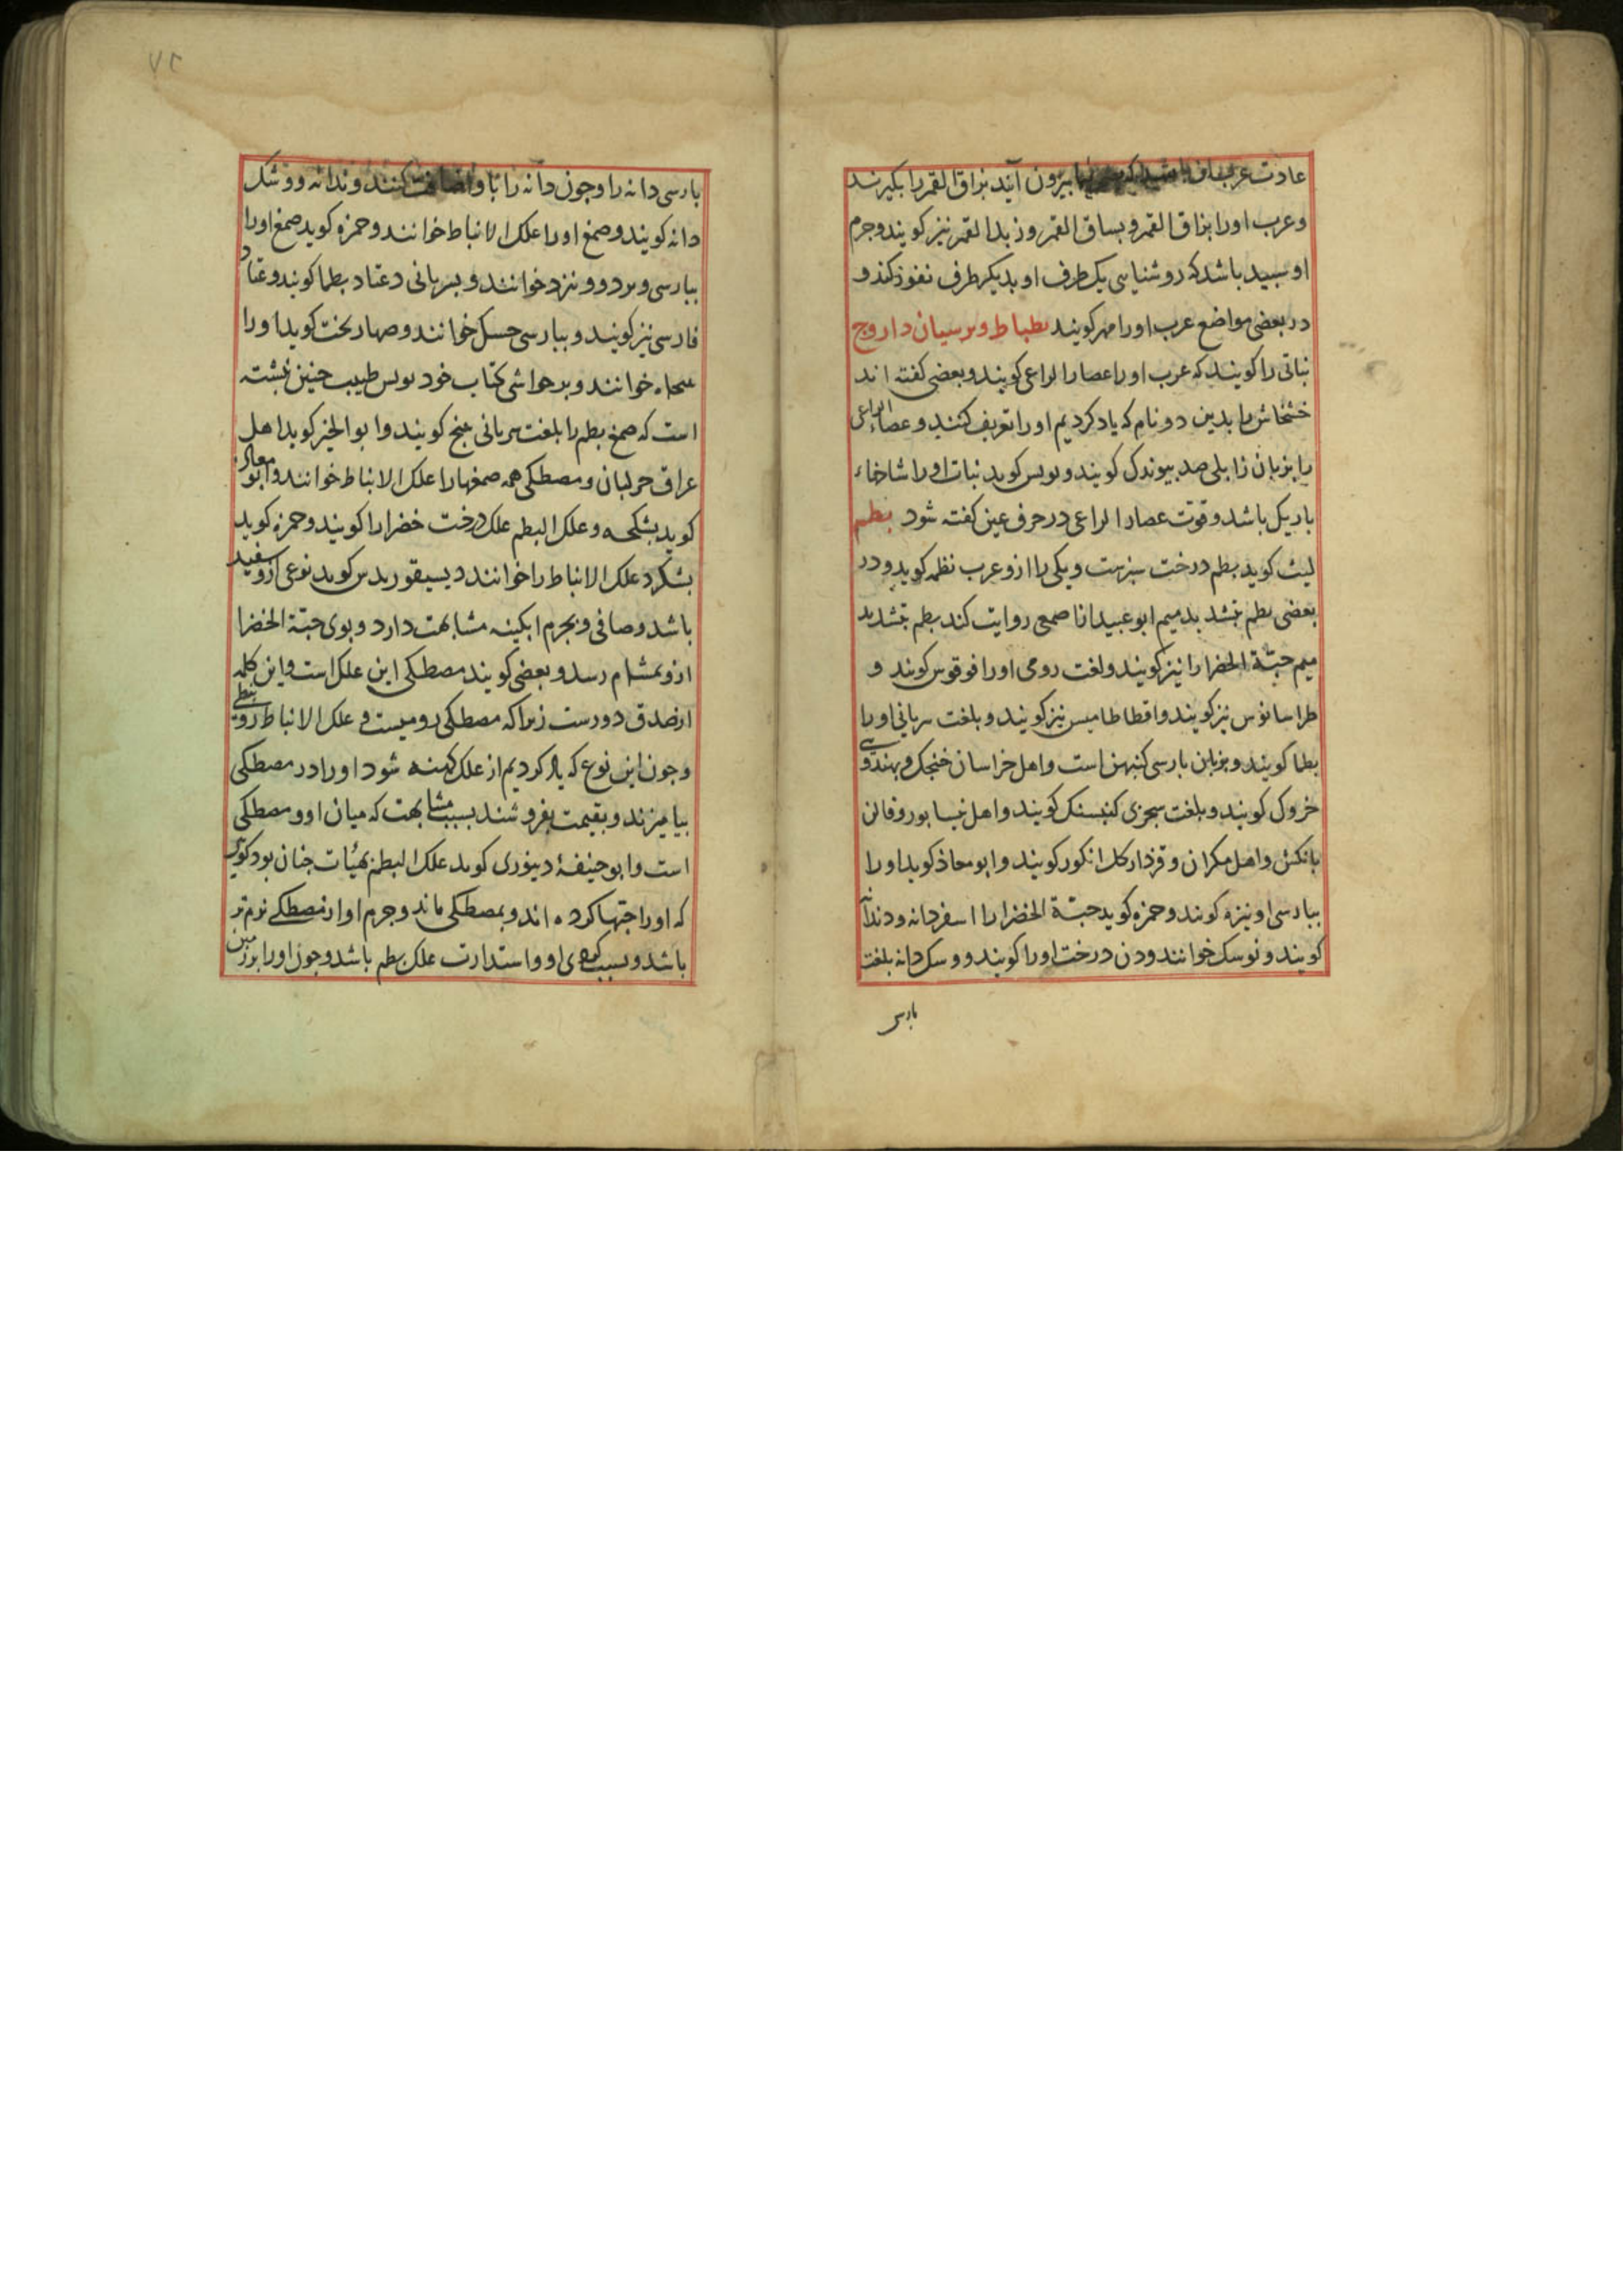 عادت عرب آن بیرون آیند بزاق القمر را بگیرند
و عرب اورا بزاق القمر و بساق القمر و زبد القمر نیز کویند و جرم
او سبید باشد که روشنایی یک طرف او بدیکر طرف نفوذ کند و
در بعضی مواضع عرب اورا مهر کویند بطباط و برسیان دارو ج
نباتی را کویند که عرب اورا عصا را الراعی کویند و بعضی کفته اند
خشخاش را بدین دو نام که یاد کردیم اورا تعریف کنند و عصاء الراعی
را بزبان زابلی صد بیوندک کویند و بولس کوید نبات او را شاخهاء
باریک باشد و قوت عصار الراعی در حرف عین کفته شود بطم
لیث کوید بطم درخت سبزست و یکی را ازو عرب نطمه کوید و در
بعضی بطم بتشدید میم ابو عبید از اصمعی روایت کند بطم بتشدید
میم حبّة الخضرا را نیز کویند و لغت رومی اورا فوقوس کویند و
طراسانوس نیز کویند و اقطاطامیس نیز کویند و بلغت سریانی اورا
بطما کویند و بزبان بارسی کنبهن است و اهل خراسان خنجک و بهندوی
خروک کویند و بلغت سجزی کنبسنک کویند و اهل نیسابور و قاین
بانکش و اهل مکران و قزدار کل انکور کویند و ابو معاذ کوید اورا
ببارسی او نیزه کویند و حمزه کوید حبّة الخضرا را اسفردانه و دندانه
کویند و نوسک خوانند و دن درخت اورا کویند و وسک دانه بلغت
بارسی
بارسی دانه را و چون دانه را با و اضافت کنند و ندانه و وشک
دانه کویند و صمغ اورا علک الانباط خوانند و حمزه کوید صمغ اورا
ببارسی و برد و ونیزد خوانند و بسریانی دعتاد بطما کویند و عتاد
فارسی نیز کویند و ببارسی حسک خوانند و صهاربخت کوید اورا
خوانند و بر حواشی کتاب خود بولس طبیب چنین نبشته
است که صمغ بطم را بلغت سریانی عنج کویند و ابو الخیر کوید اهل
عراق حر لبان و مصطکی همه صمغها را علک الانباط خوانند و ابو معاذ
کوید بشکحه و علک البطم علک درخت خضرا را کویند و حمزه کوید
بشکرد علک الانباط را خوانند دیسیقوریدس کوید نوعی ازو سفید
باشد و صافی و بجرم ابکینه مشابهت دارد و بوی حبّة الخضرا
ازو بمشام رسد و بعضی کویند مصطکی این علک است و این کلمه
از صدق دورست زیرا که مصطکی رومیست و علک الانباط نبطی
و چون این نوع که یاد کردیم از علک کهنه شود اورا در مصطکی
بیامیزند و بقیمت بفروشند بسبب مشابهت که میان او و مصطکی
است و ابو حنیفهٔ دینوری کوید علک البطم بهیئات چنان بود کویی
که اورا حبّها کرده اند و بمصطکی ماند و جرم او از مصطکی نرم تر
باشد و بسبب کردی او و استدارت علک بطم باشد و چون اورا بر زمین